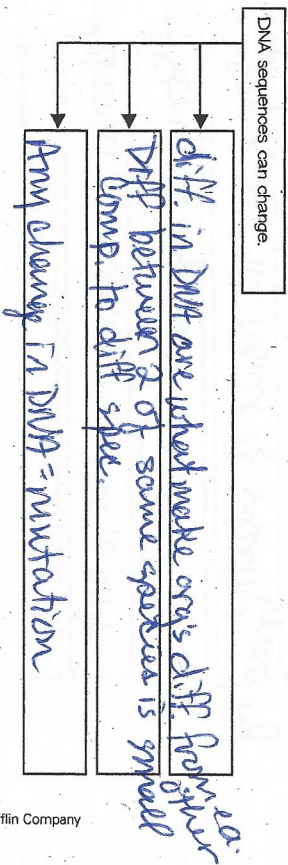 DNA sequences can change.
diff. in DNA are what make org's diff. from ea.
other
Diff between 2 of same species is small
comp. to diff spec.
Any change in DNA = mutation
flin Company